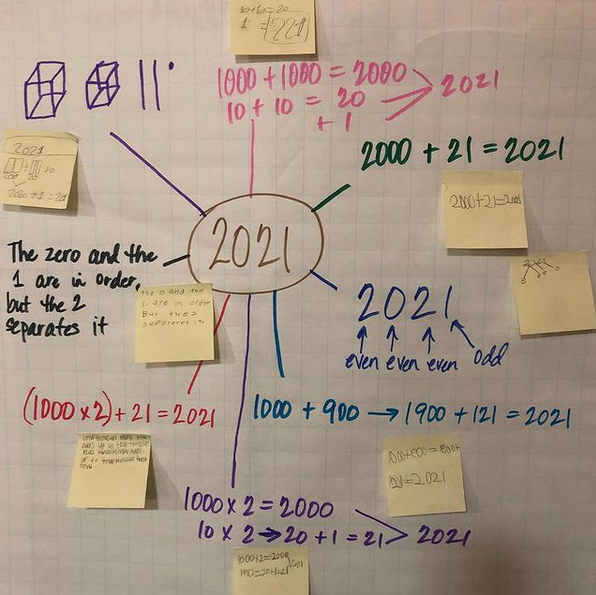 10+10=20
1 = 221
1000 + 1000 = 2000
10 + 10 = 20
+ 1
2021
2000 + 21 = 2021
2021
2000+21=2021
2021
The zero and the
1 are in order,
but the 2
separates it
the 0 and the
1. are in order
But the 2
separates it
2021
even even even odd
(1000 x 2) + 21 = 2021
1000 + 900 → 1900 + 121 = 2021
121=2021
1000 x 2 = 2000
10 x 2 → 20 + 1 = 21
2021
1000x2=2000
2021